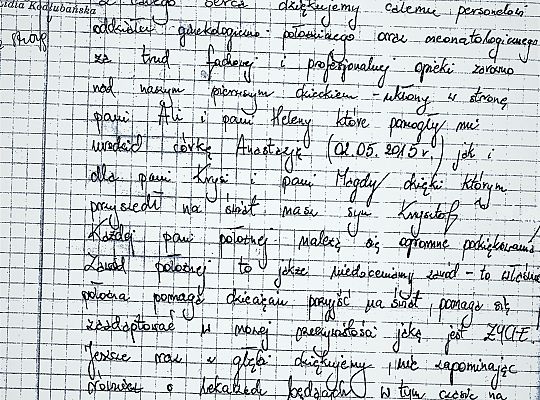 idia Kodłubańska
z całego serca dziękujemy całemu personelowi
oddziału ginekologiczno - położniczego oraz neonatologicznego
za trud fachowej i profesjonalnej opieki zarówno
nad naszym pierwszym dzieckiem - ukłony w stronę
pani Ali i pani Heleny które pomogły mi
urodzić córkę Anastazję (02.05.2015 r.) jak i
dla pani Krysi i pani Magdy dzięki którym
przyszedł na świat nasz syn Krzysztof
Każdej pani położnej należą się ogromne podziękowania
Zawód położnej to jakże niedoceniany zawód - to właśnie
położna pomaga dzieciom przyjść na świat, pomaga się
zaadaptować w nowej rzeczywistości jaką jest ŻYCIE.
Jeszcze raz z głębi dziękujemy, nie zapominając
również o lekarzach będących w tym czasie na